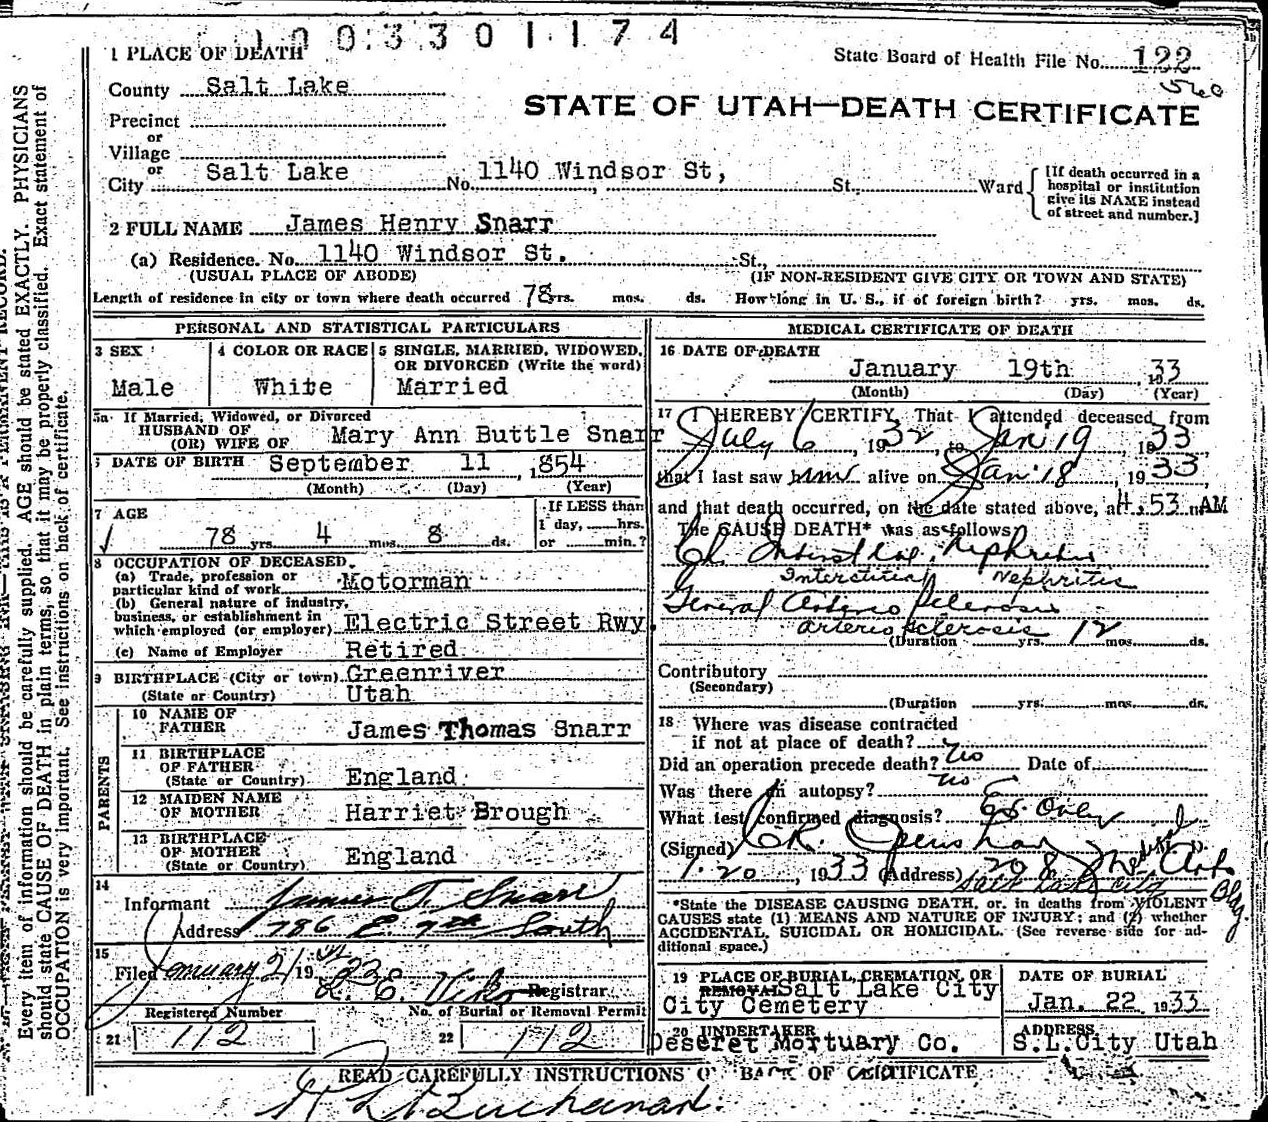 1003301174
1 PLACE OF DEATH
State Board of Health File No. 122
560
County Salt Lake
STATE OF UTAH—DEATH CERTIFICATE
Precinct
or
Village
or
City Salt Lake No. 1140 Windsor St, St., Ward
[If death occurred in a
hospital or institution
give its NAME instead
of street and number.]
2 FULL NAME James Henry Snarr
(a) Residence. No. 1140 Windsor St. St.,
(USUAL PLACE OF ABODE) (IF NON-RESIDENT GIVE CITY OR TOWN AND STATE)
Length of residence in city or town where death occurred 78 yrs. mos. ds. How long in U. S., if of foreign birth? yrs. mos. ds.
PERSONAL AND STATISTICAL PARTICULARS
3 SEX
Male
4 COLOR OR RACE
White
5 SINGLE, MARRIED, WIDOWED,
OR DIVORCED (Write the word)
Married
5a If Married, Widowed, or Divorced
HUSBAND OF
(OR) WIFE OF Mary Ann Buttle Snarr
6 DATE OF BIRTH September 11, 1854
(Month) (Day) (Year)
7 AGE
78 yrs. 4 mos. 8 ds.
If LESS than
1 day, hrs.
or min.?
8 OCCUPATION OF DECEASED.
(a) Trade, profession or
particular kind of work Motorman
(b) General nature of industry,
business, or establishment in
which employed (or employer) Electric Street Rwy.
(c) Name of Employer Retired
9 BIRTHPLACE (City or town) Greenriver
(State or Country) Utah
PARENTS
10 NAME OF
FATHER James Thomas Snarr
11 BIRTHPLACE
OF FATHER
(State or Country) England
12 MAIDEN NAME
OF MOTHER Harriet Brough
13 BIRTHPLACE
OF MOTHER
(State or Country) England
14
Informant James T. Snarr
Address 786 E 9th South
15
Filed January 21 1933
L. E. Viko Registrar
Registered Number
21 112
No. of Burial or Removal Permit
22 112
MEDICAL CERTIFICATE OF DEATH
16 DATE OF DEATH
January 19th 1933
(Month) (Day) (Year)
17 I HEREBY CERTIFY, That I attended deceased from
July 6, 1932, to Jan 19 1933
that I last saw him alive on Jan 18, 1933
and that death occurred, on the date stated above, at 4.53 m AM
The CAUSE DEATH* was as follows:
Ch. Interstitial Nephritis
Interstitial Nephritis
General Arterio Sclerosis
arterio sclerosis
(Duration yrs. 12 mos. ds.
Contributory
(Secondary)
(Duration yrs. mos. ds.
18 Where was disease contracted
if not at place of death?
Did an operation precede death? no Date of
Was there an autopsy? no
What test confirmed diagnosis?
(Signed) C.R. Openshaw M. D.
1.20, 1933 (Address) 708 Medical Arts
Bldg.
Salt Lake City
*State the DISEASE CAUSING DEATH, or, in deaths from VIOLENT
CAUSES state (1) MEANS AND NATURE OF INJURY; and (2) whether
ACCIDENTAL, SUICIDAL OR HOMICIDAL. (See reverse side for ad-
ditional space.)
19 PLACE OF BURIAL, CREMATION, OR
REMOVAL Salt Lake City
City Cemetery
DATE OF BURIAL
Jan. 22 1933
20 UNDERTAKER
Deseret Mortuary Co.
ADDRESS
S.L.City Utah
READ CAREFULLY INSTRUCTIONS ON BACK OF CERTIFICATE
Buchanan.
Every item of information should be carefully supplied. AGE should be stated EXACTLY. PHYSICIANS
should state CAUSE OF DEATH in plain terms, so that it may be properly classified. Exact statement of
OCCUPATION is very important. See instructions on back of certificate.